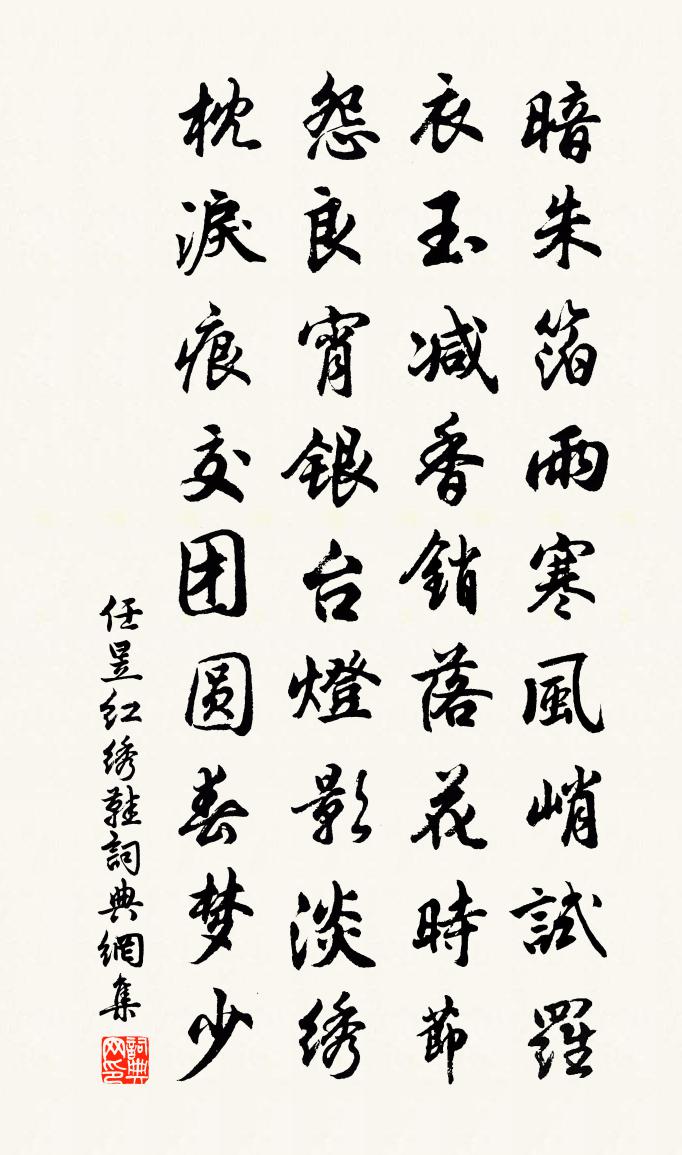 暗朱箔雨寒風峭試羅
衣玉减香銷落花時節
怨良宵銀台燈影淡绣
枕淚痕交团圆春梦少
任昱红绣鞋詞典網集
詞典网印